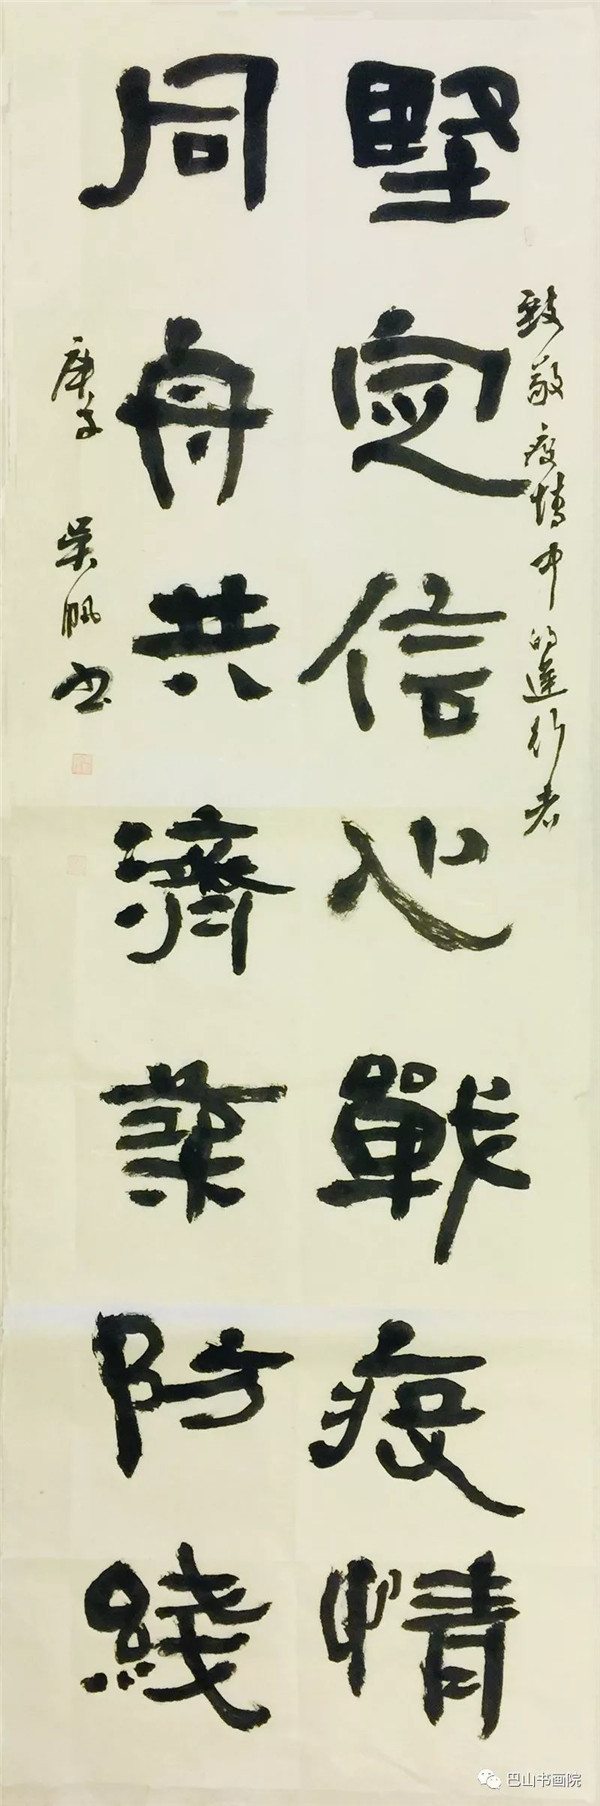 致敬疫情中的逆行者
堅定信心戰疫情
同舟共濟築防綫
庚子 吴帆书
巴山书画院